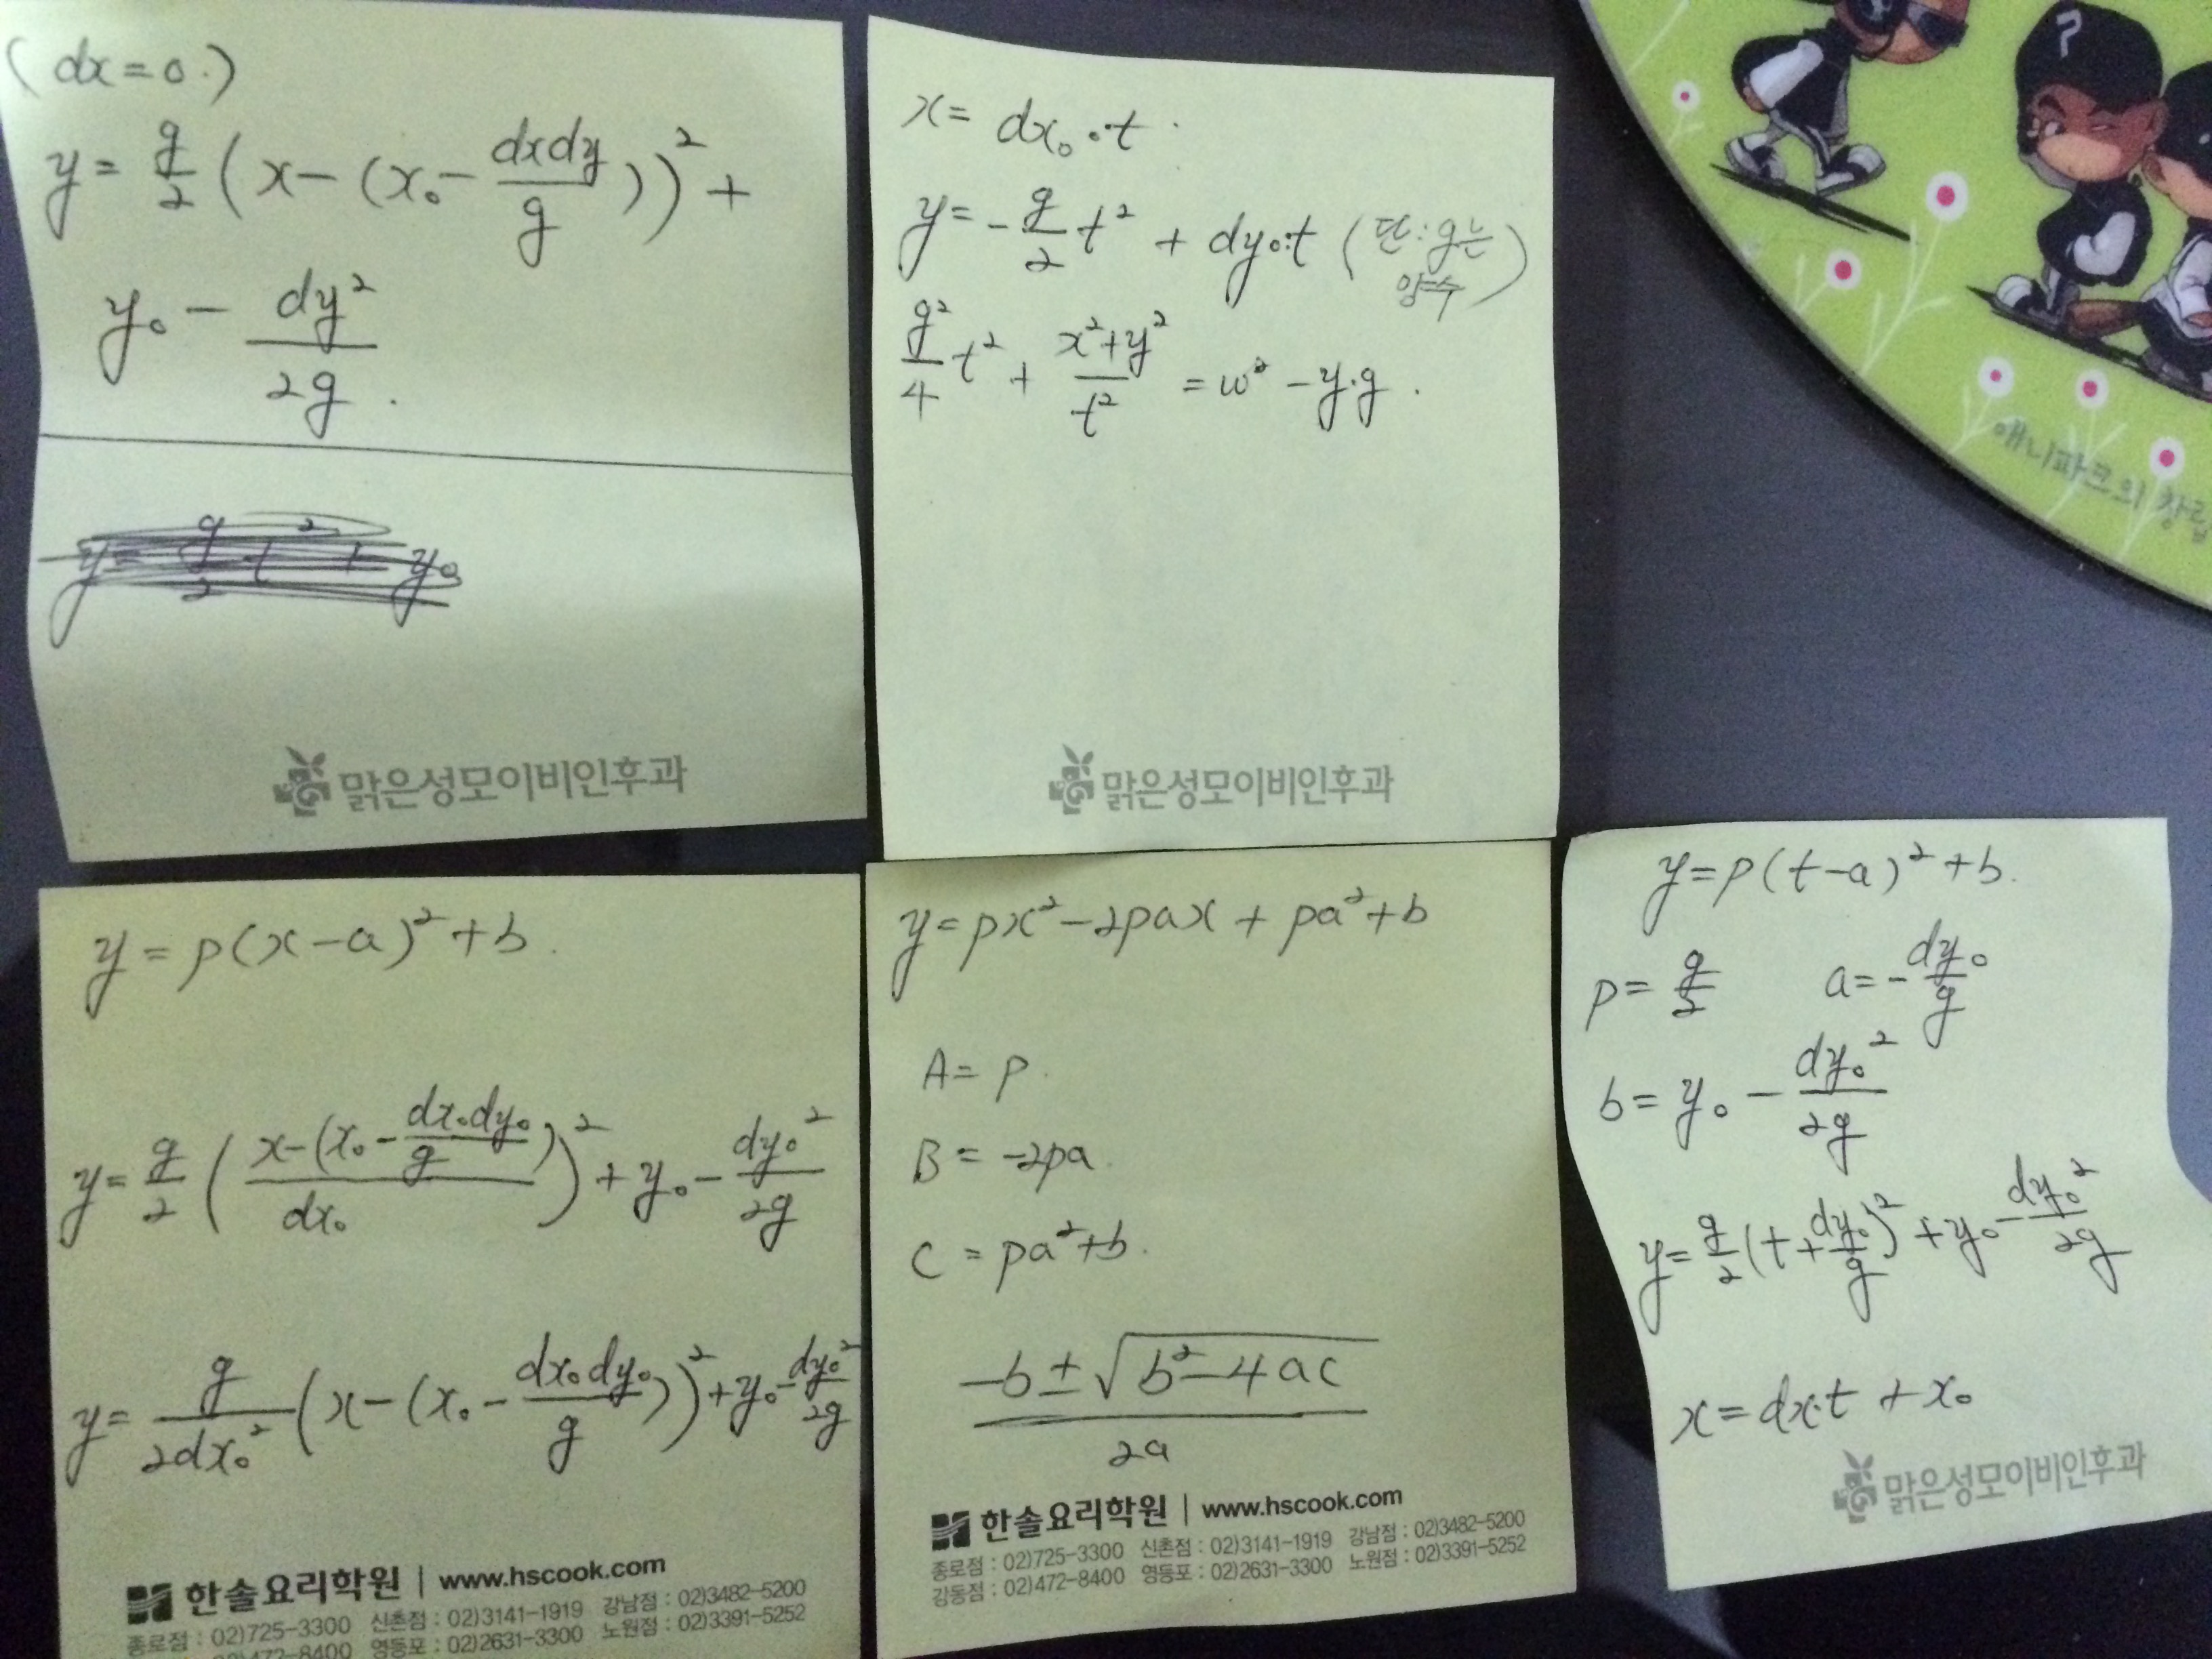 (dx=0.)
y= g/2 (x-(x₀- dxdy/g))² +
y₀ - dy²/2g .
y= g/2 t² + y₀
맑은성모이비인후과
x= dx₀·t .
y= - g/2 t² + dy₀·t (단:g는
양수)
g²/4 t² + (x²+y²)/t² = w² - y·g .
맑은성모이비인후과
애니파크의 창립
y = p(x-a)² +b .
y= g/2 ( (x-(x₀- dx₀dy₀/g))/dx₀ )² + y₀ - dy₀²/2g
y= g/2dx₀² (x-(x₀- dx₀dy₀/g))² + y₀ - dy₀²/2g
한솔요리학원 | www.hscook.com
종로점 : 02)725-3300 신촌점 : 02)3141-1919 강남점 : 02)3482-5200
02)472-8400 영등포 : 02)2631-3300 노원점 : 02)3391-5252
y= px² -2pax + pa² +b
A= p .
B = -2pa .
C = pa²+b .
(-b ± √(b²-4ac))/2a
한솔요리학원 | www.hscook.com
종로점 : 02)725-3300 신촌점 : 02)3141-1919 강남점 : 02)3482-5200
강동점 : 02)472-8400 영등포 : 02)2631-3300 노원점 : 02)3391-5252
y=p(t-a)² +b .
p= g/2 a= - dy₀/g
b= y₀ - dy₀²/2g
y= g/2 (t+ dy₀/g)² +y₀ - dy₀²/2g
x= dx·t + x₀
맑은성모이비인후과